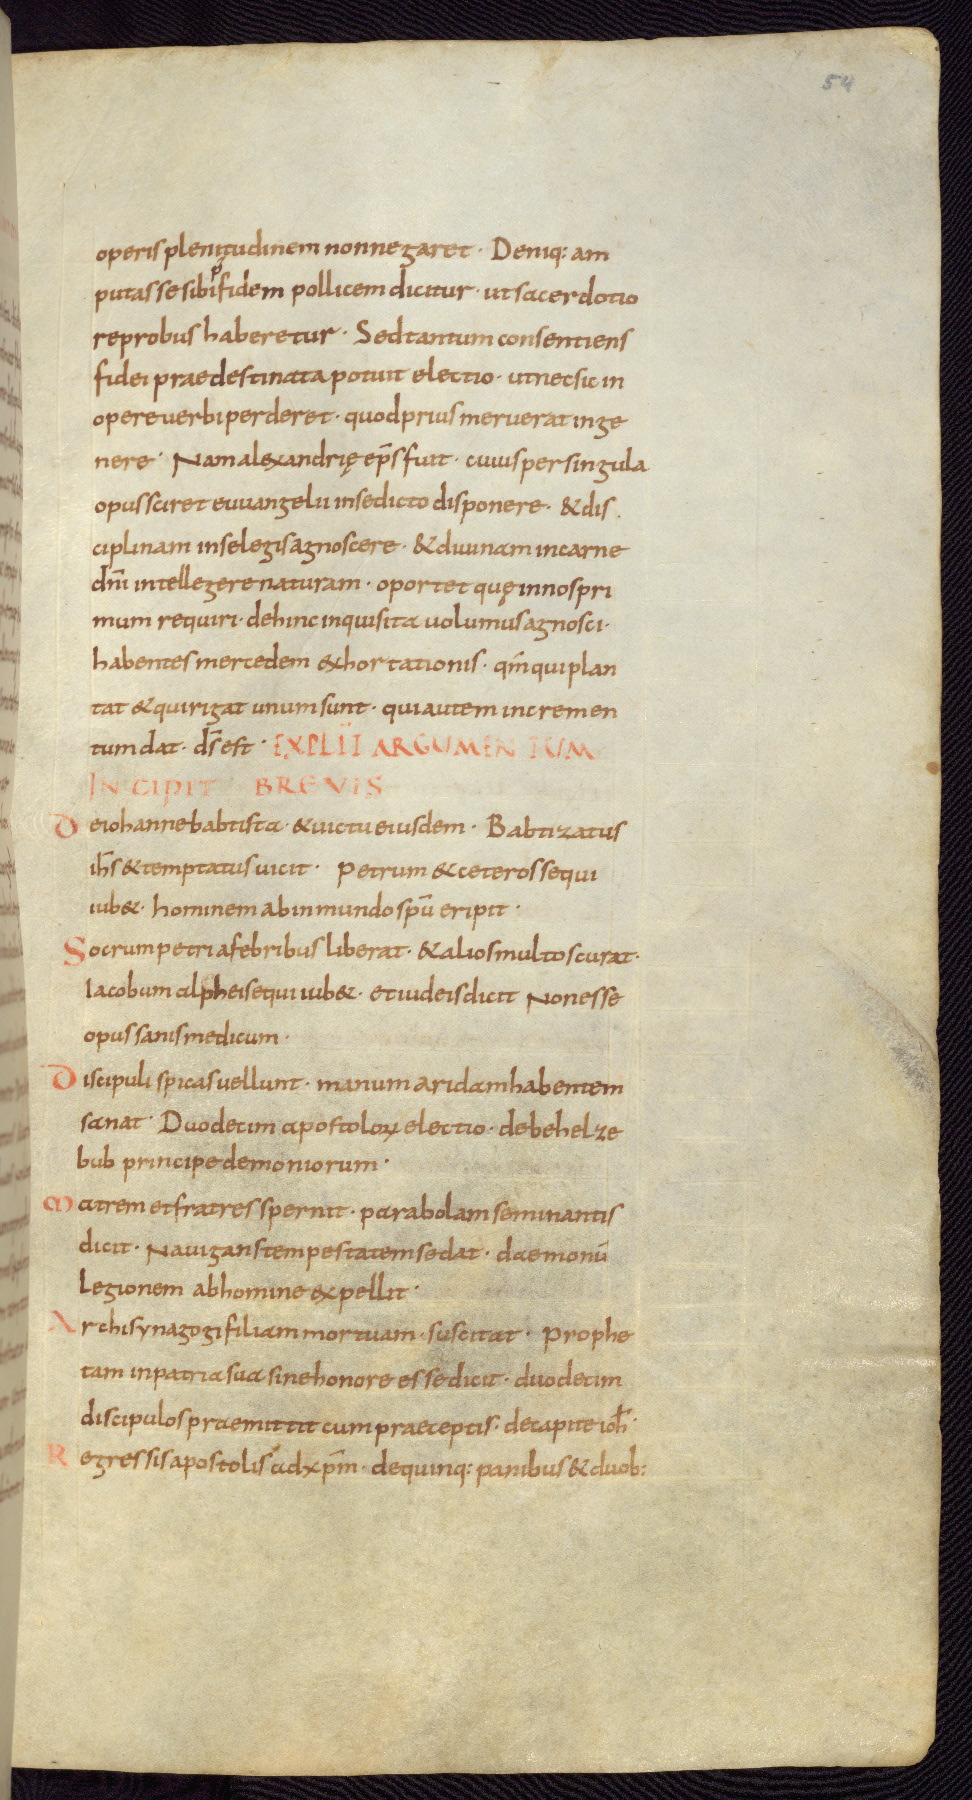 54
operis plenitudinem non negaret · Deniq: am
putasse sibi p fidem pollicem dicitur · ut sacerdotio
reprobus haberetur · Sed tantum consentiens
fidei praedestinata potuit electio · ut nec sic in
opere verbi perderet · quod prius meruerat in ge
nere · Nam alexandrię ep̄s fuit · cuius per singula
opus sciret euuangelii in se dicto disponere · & dis
ciplinam in se legis agnoscere · & diuinam in carne
dn̄i intellegere naturam · oportet quę in nos pri
mum requiri · dehinc inquisita uolumus agnosci ·
habentes mercedem exhortationis · qm̄ qui plan
tat & qui rigat unum sunt · qui autem incremen
tum dat · d̄s est · EXPLIT ARGUMENTUM
INCIPIT BREVIS
De iohanne babtista · & uictu eiusdem · Babtizatus
ih̄s & temptatus uicit · Petrum & ceteros sequi
iub& · hominem ab inmundo spū eripit ·
Socrum petri a febribus liberat · & alios multos curat ·
Iacobum alphei sequi iub& · et iudeis dicit Non esse
opus sanis medicum ·
Discipuli spicas uellunt · manum aridam habentem
sanat · Duodecim apostoloꝝ electio · de behelze
bub principe demoniorum ·
Matrem et fratres spernit · parabolam seminantis
dicit · Nauigans tempestatem sedat · daemonū
legionem ab homine expellit ·
Archisynagogi filiam mortuam · suscitat · Prophe
tam in patria sua sine honore esse dicit · duodecim
discipulos praemittit cum praeceptis · de capite ioh̄ ·
Regressis apostolis ad xpm̄ · de quinq: panibus & duob: